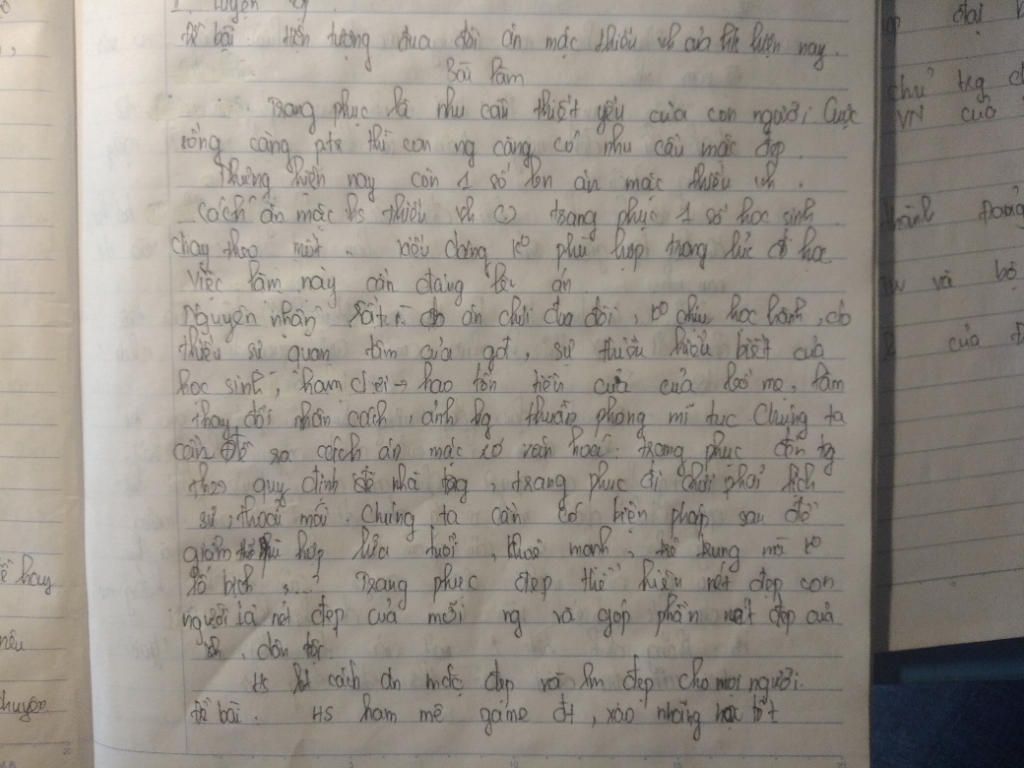 1. Luyện
Đề bài. Hiện tượng đua đòi ăn mặc thiếu vh của hiện nay.
Bài làm
Trang phục là nhu cầu thiết yếu của con người. Cuộc
sống càng ptr thì con ng càng có nhu cầu mặc đẹp.
Nhưng hiện nay còn 1 số ăn mặc thiếu vh.
Cách ăn mặc hs thiếu vh trang phục 1 số học sinh
chạy theo mốt kiểu dáng ko phù hợp trong lúc đi học
Việc làm này cần đáng lên án
Nguyên nhân ăn chơi đua đòi, ko chịu học hành, do
thiếu sự quan tâm của gđ, sự thiếu hiểu biết của
học sinh, ham chơi → hao tốn tiền của của bố mẹ, làm
thay đổi nhân cách, ảnh hg thuần phong mĩ tục Chúng ta
cần ra cách ăn mặc có văn hoá. trang phục đến tg
theo quy định nhà, trang phục đi chơi phải lịch
sự, thoải mái. Chúng ta cần có biện pháp sau để
giảm hợp lứa tuổi, khoẻ mạnh, trẻ trung mà ko
lố bịch ... Trang phục đẹp thể hiện nét đẹp con
người là nét đẹp của mỗi ng và góp phần nét đẹp của
vh, dân tộc
Hs cách ăn mặc đẹp và làm đẹp cho mọi người.
Đề bài. HS ham mê game đt, xao nhãng học tốt
đại
chủ trg
VN của
và bộ
của
hay
chuyện